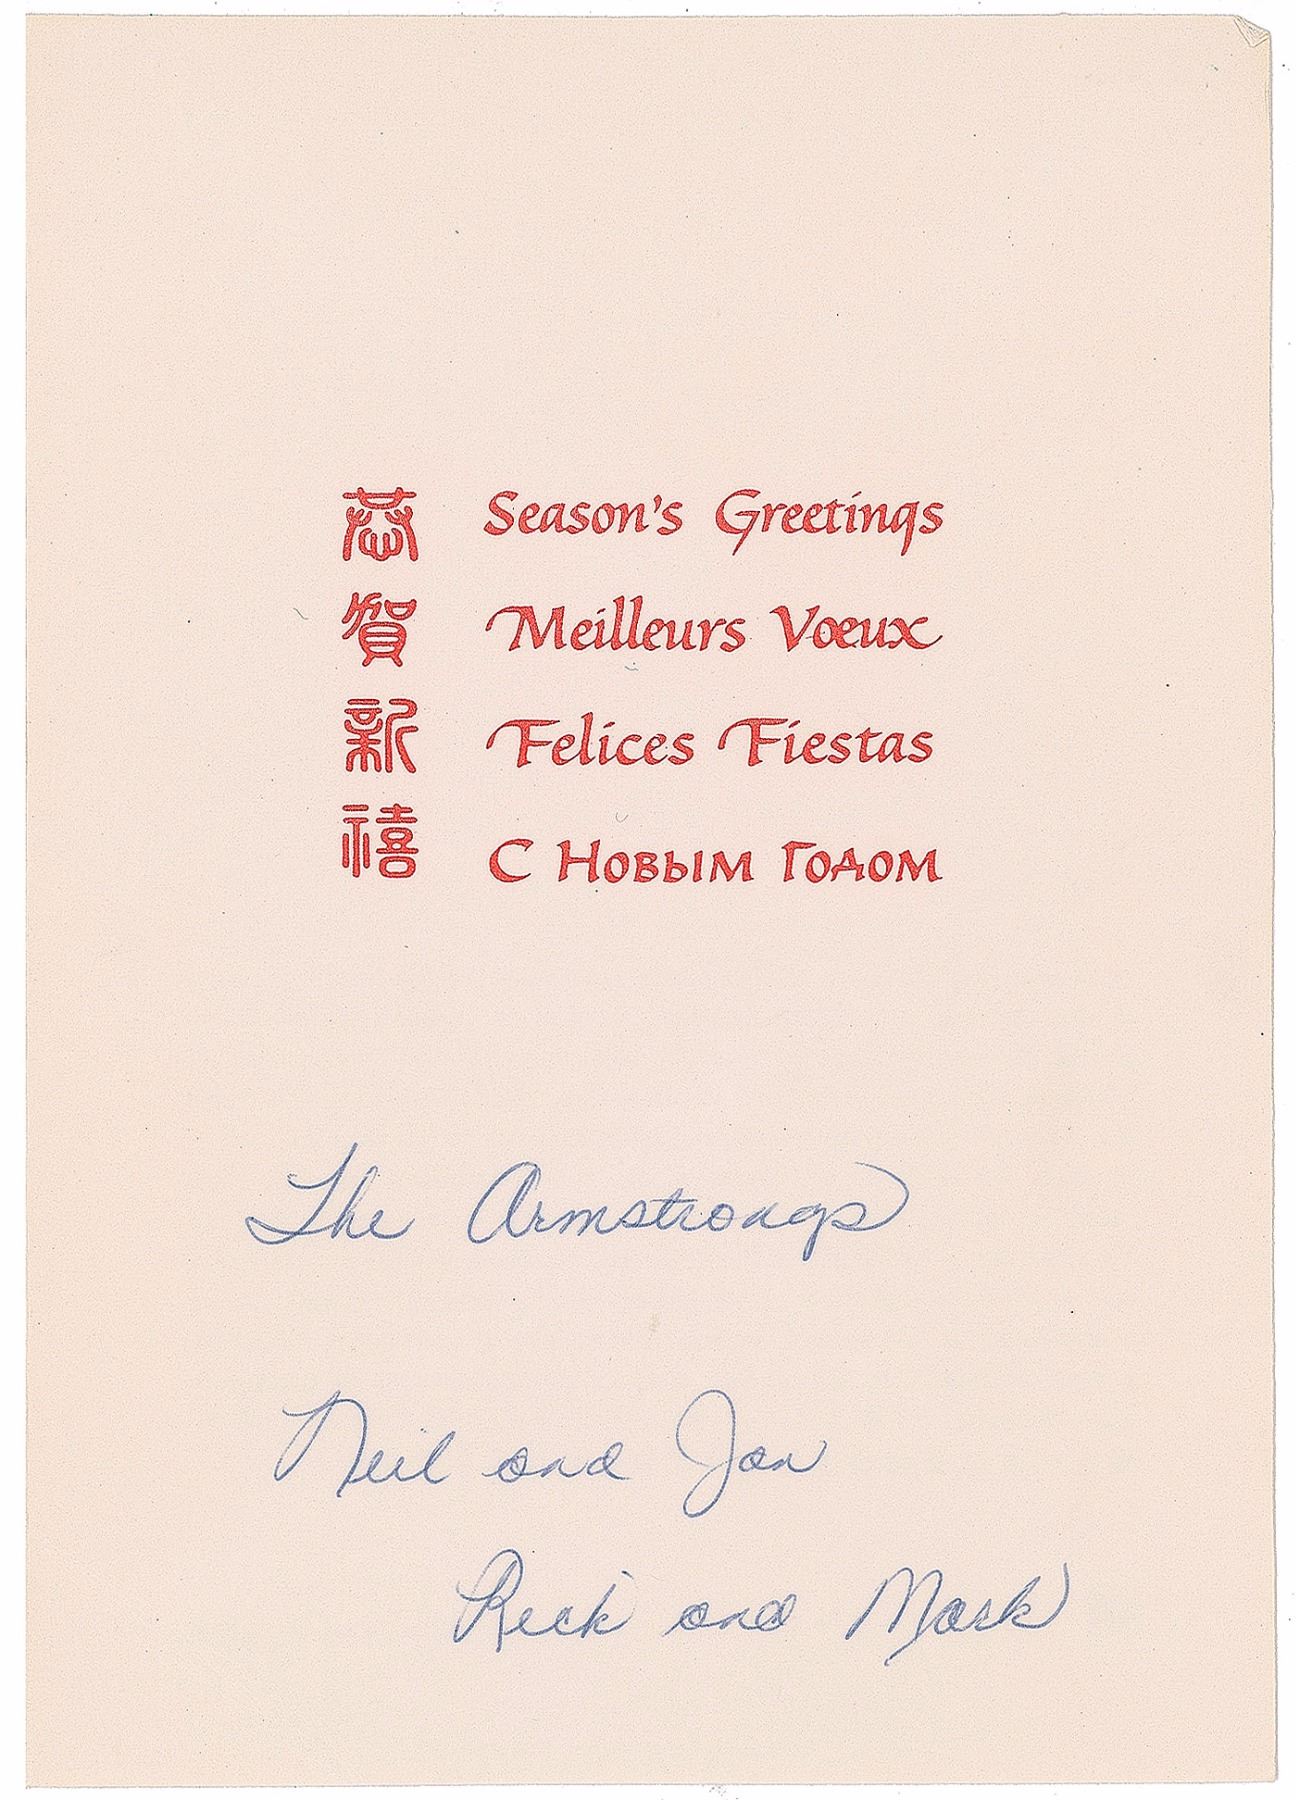 恭賀新禧
Season's Greetings
Meilleurs Vœux
Felices Fiestas
С Новым Годом
The Armstrongs
Neil and Jan
Rick and Mark